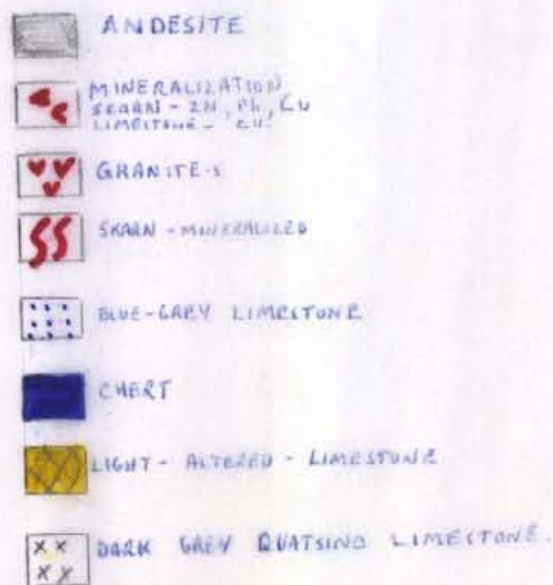 ANDESITE
MINERALIZATION
SKARN - ZN, Pb, CU
LIMESTONE - CU.
GRANITE-S
SKARN - MINERALIZED
BLUE-GREY LIMESTONE
CHERT
LIGHT - ALTERED - LIMESTONE
DARK GREY QUATSINO LIMESTONE.